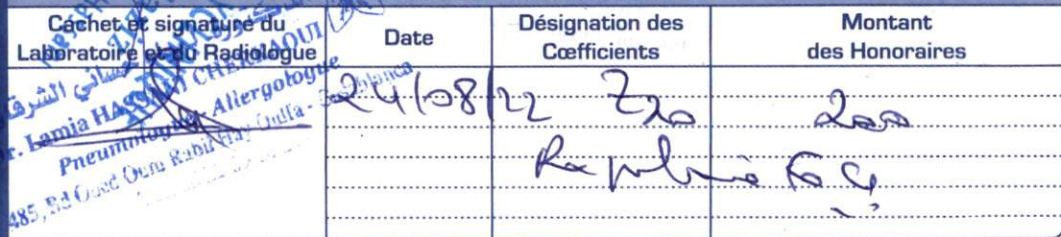 Cachet et signature du
Laboratoire et du Radiologue
Date
Désignation des
Cœfficients
Montant
des Honoraires
Lamia
CHERKAOUI
Pneumologue Allergologue
485, Bd Oued Oum Rabia Hay Oulfa -
24/08/22 Z20 200